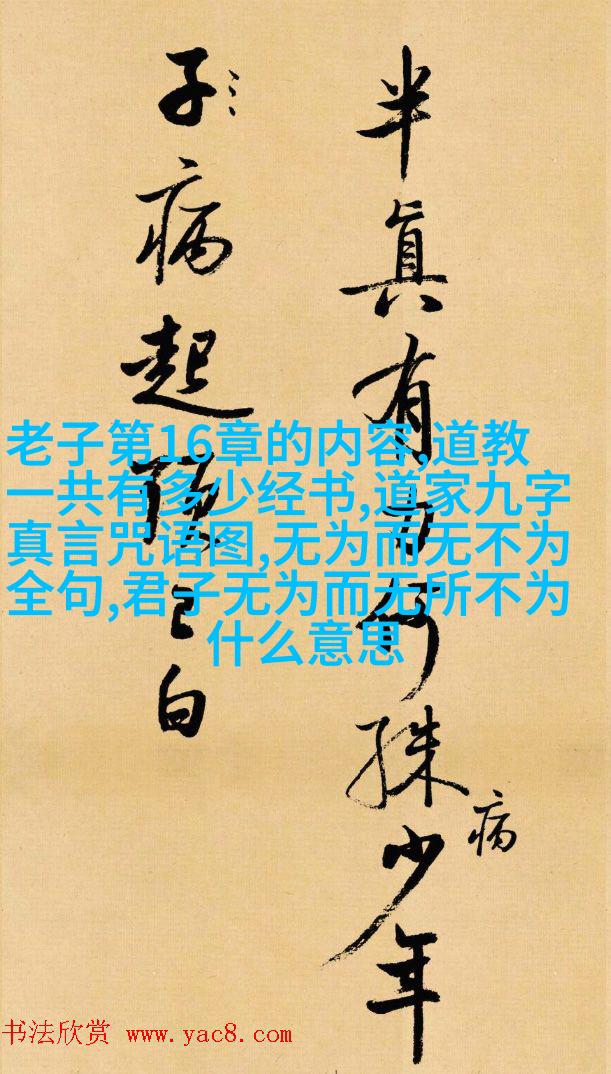 半真有何殊少年
病
子病起已白
老子第16章的内容,道教
一共有多少经书,道家九字
真言咒语图,无为而无不为
全句,君子无为而无所不为
什么意思
书法欣赏 www.yac8.com